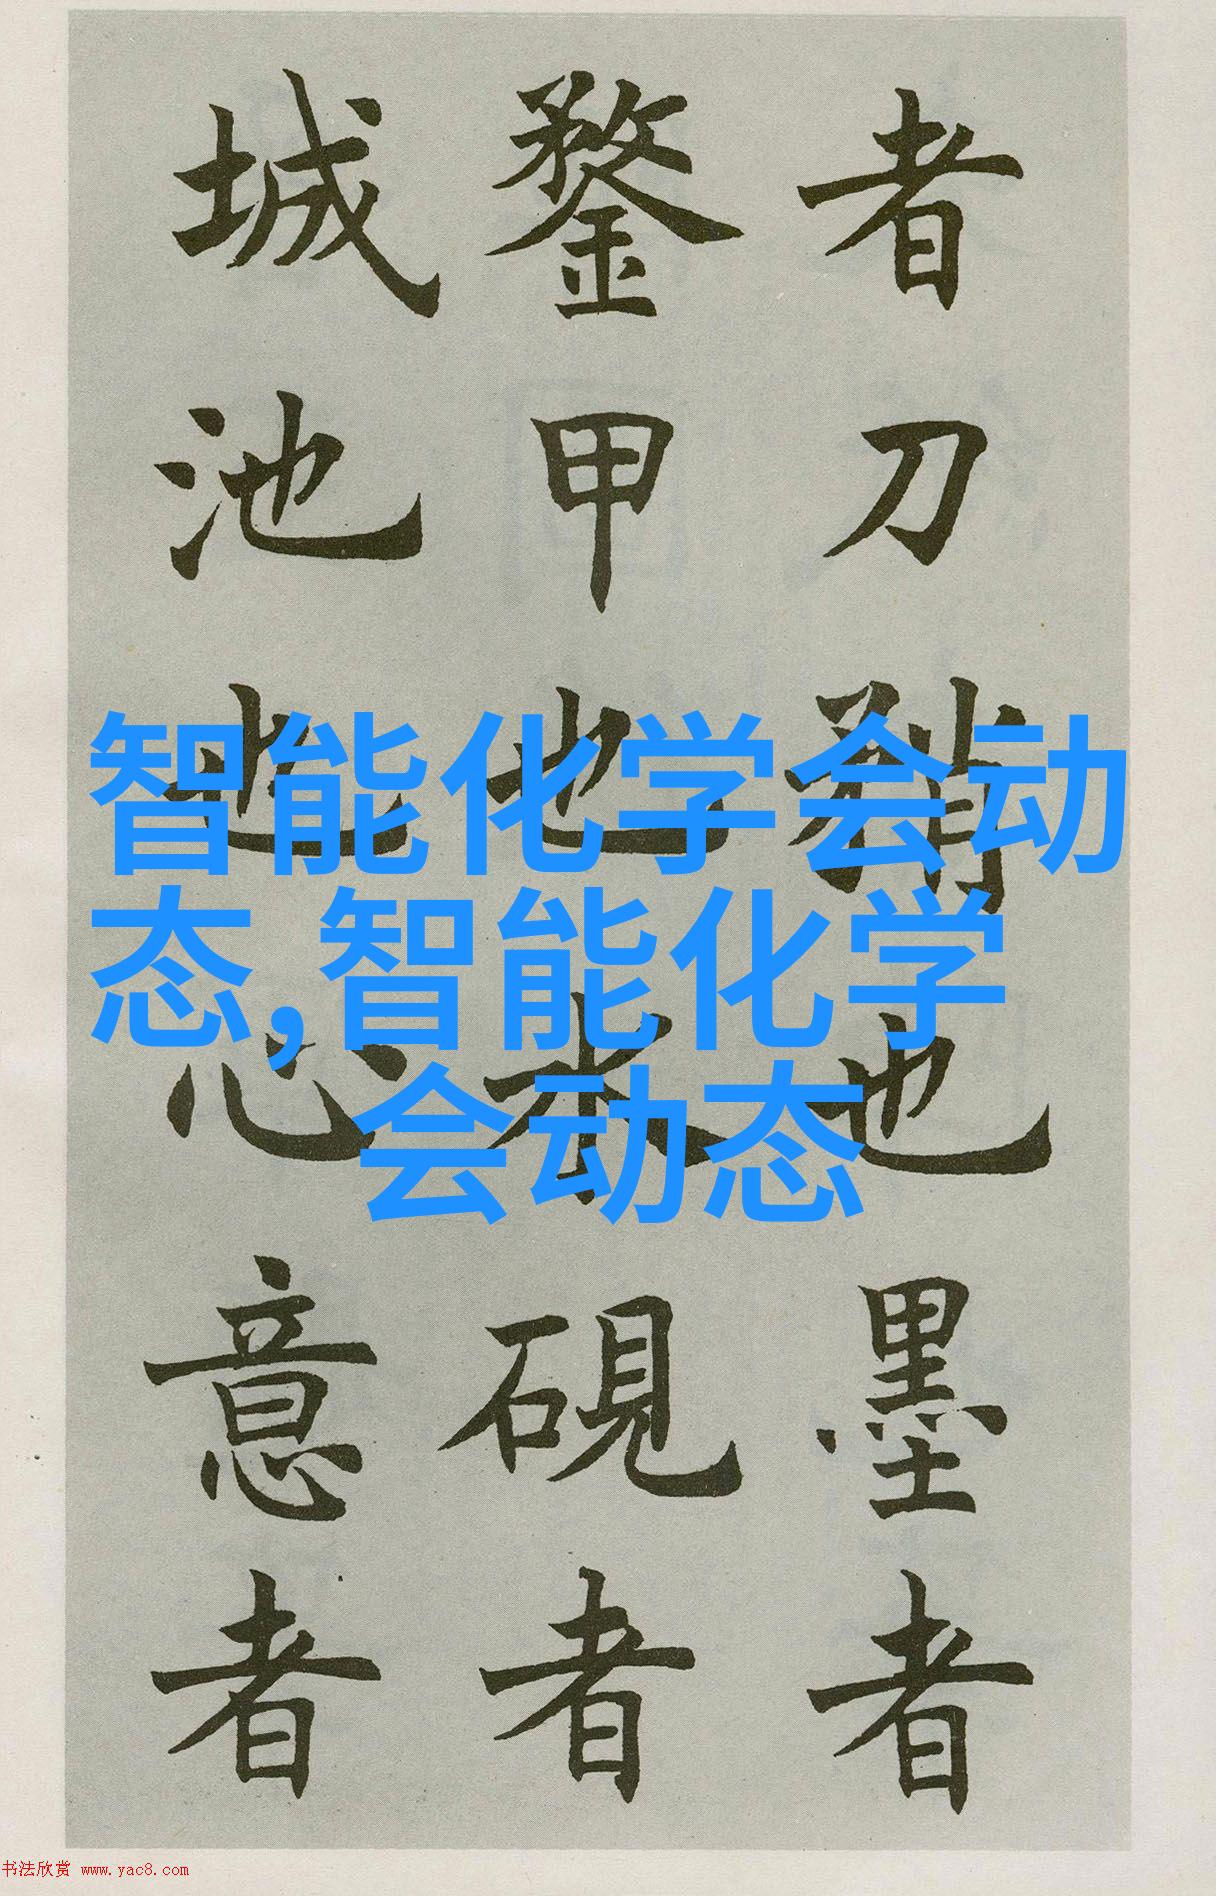 者刀矟也墨者
鍪甲也水硯者
城池也心意者
智能化学会动
态,智能化学
会动态
书法欣赏 www.yac8.com